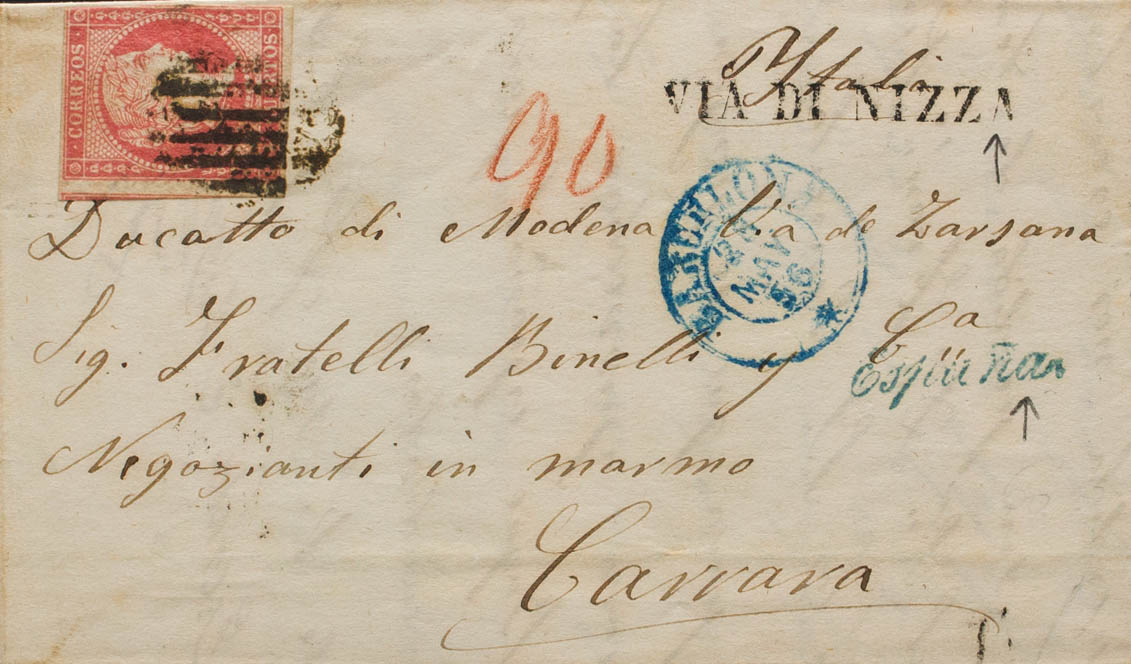 CORREOS
Italia
VIA DI NIZZA
90
BARCELONA
24
MAY
56
Ducatto di Modena Via de Zarsana
Sig. Fratelli Binelli y Cª
España
Negozianti in marmo
Carrara